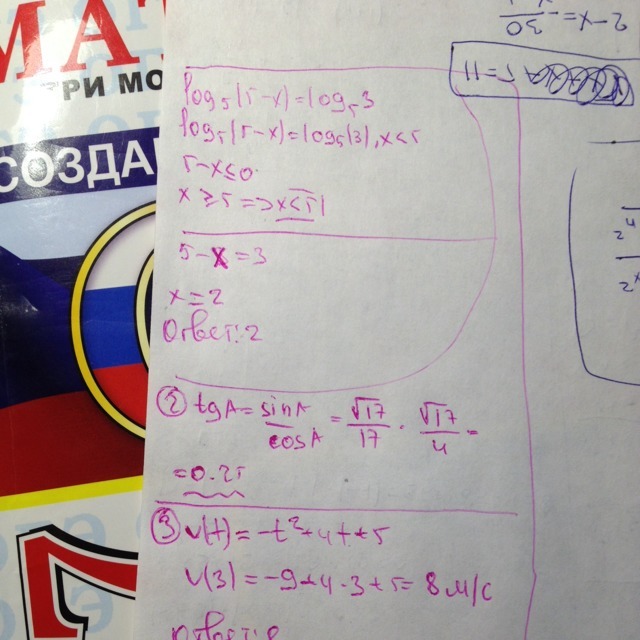 МАТ
ТРИ МО
СОЗДА
log₅(5-x)=log₅3
log₅(5-x)=log₅(3), x<5
5-x≤0
x≥5 => x<5
5-x=3
x=2
Ответ: 2
② tgA = sinA/cosA = √17/17 · √17/4 =
= 0.25
③ v(t)=-t²+4t+5
v(3)=-9+4·3+5=8 м/с
Ответ: 8
2-x=
30
5=11
2
4
2ˣ